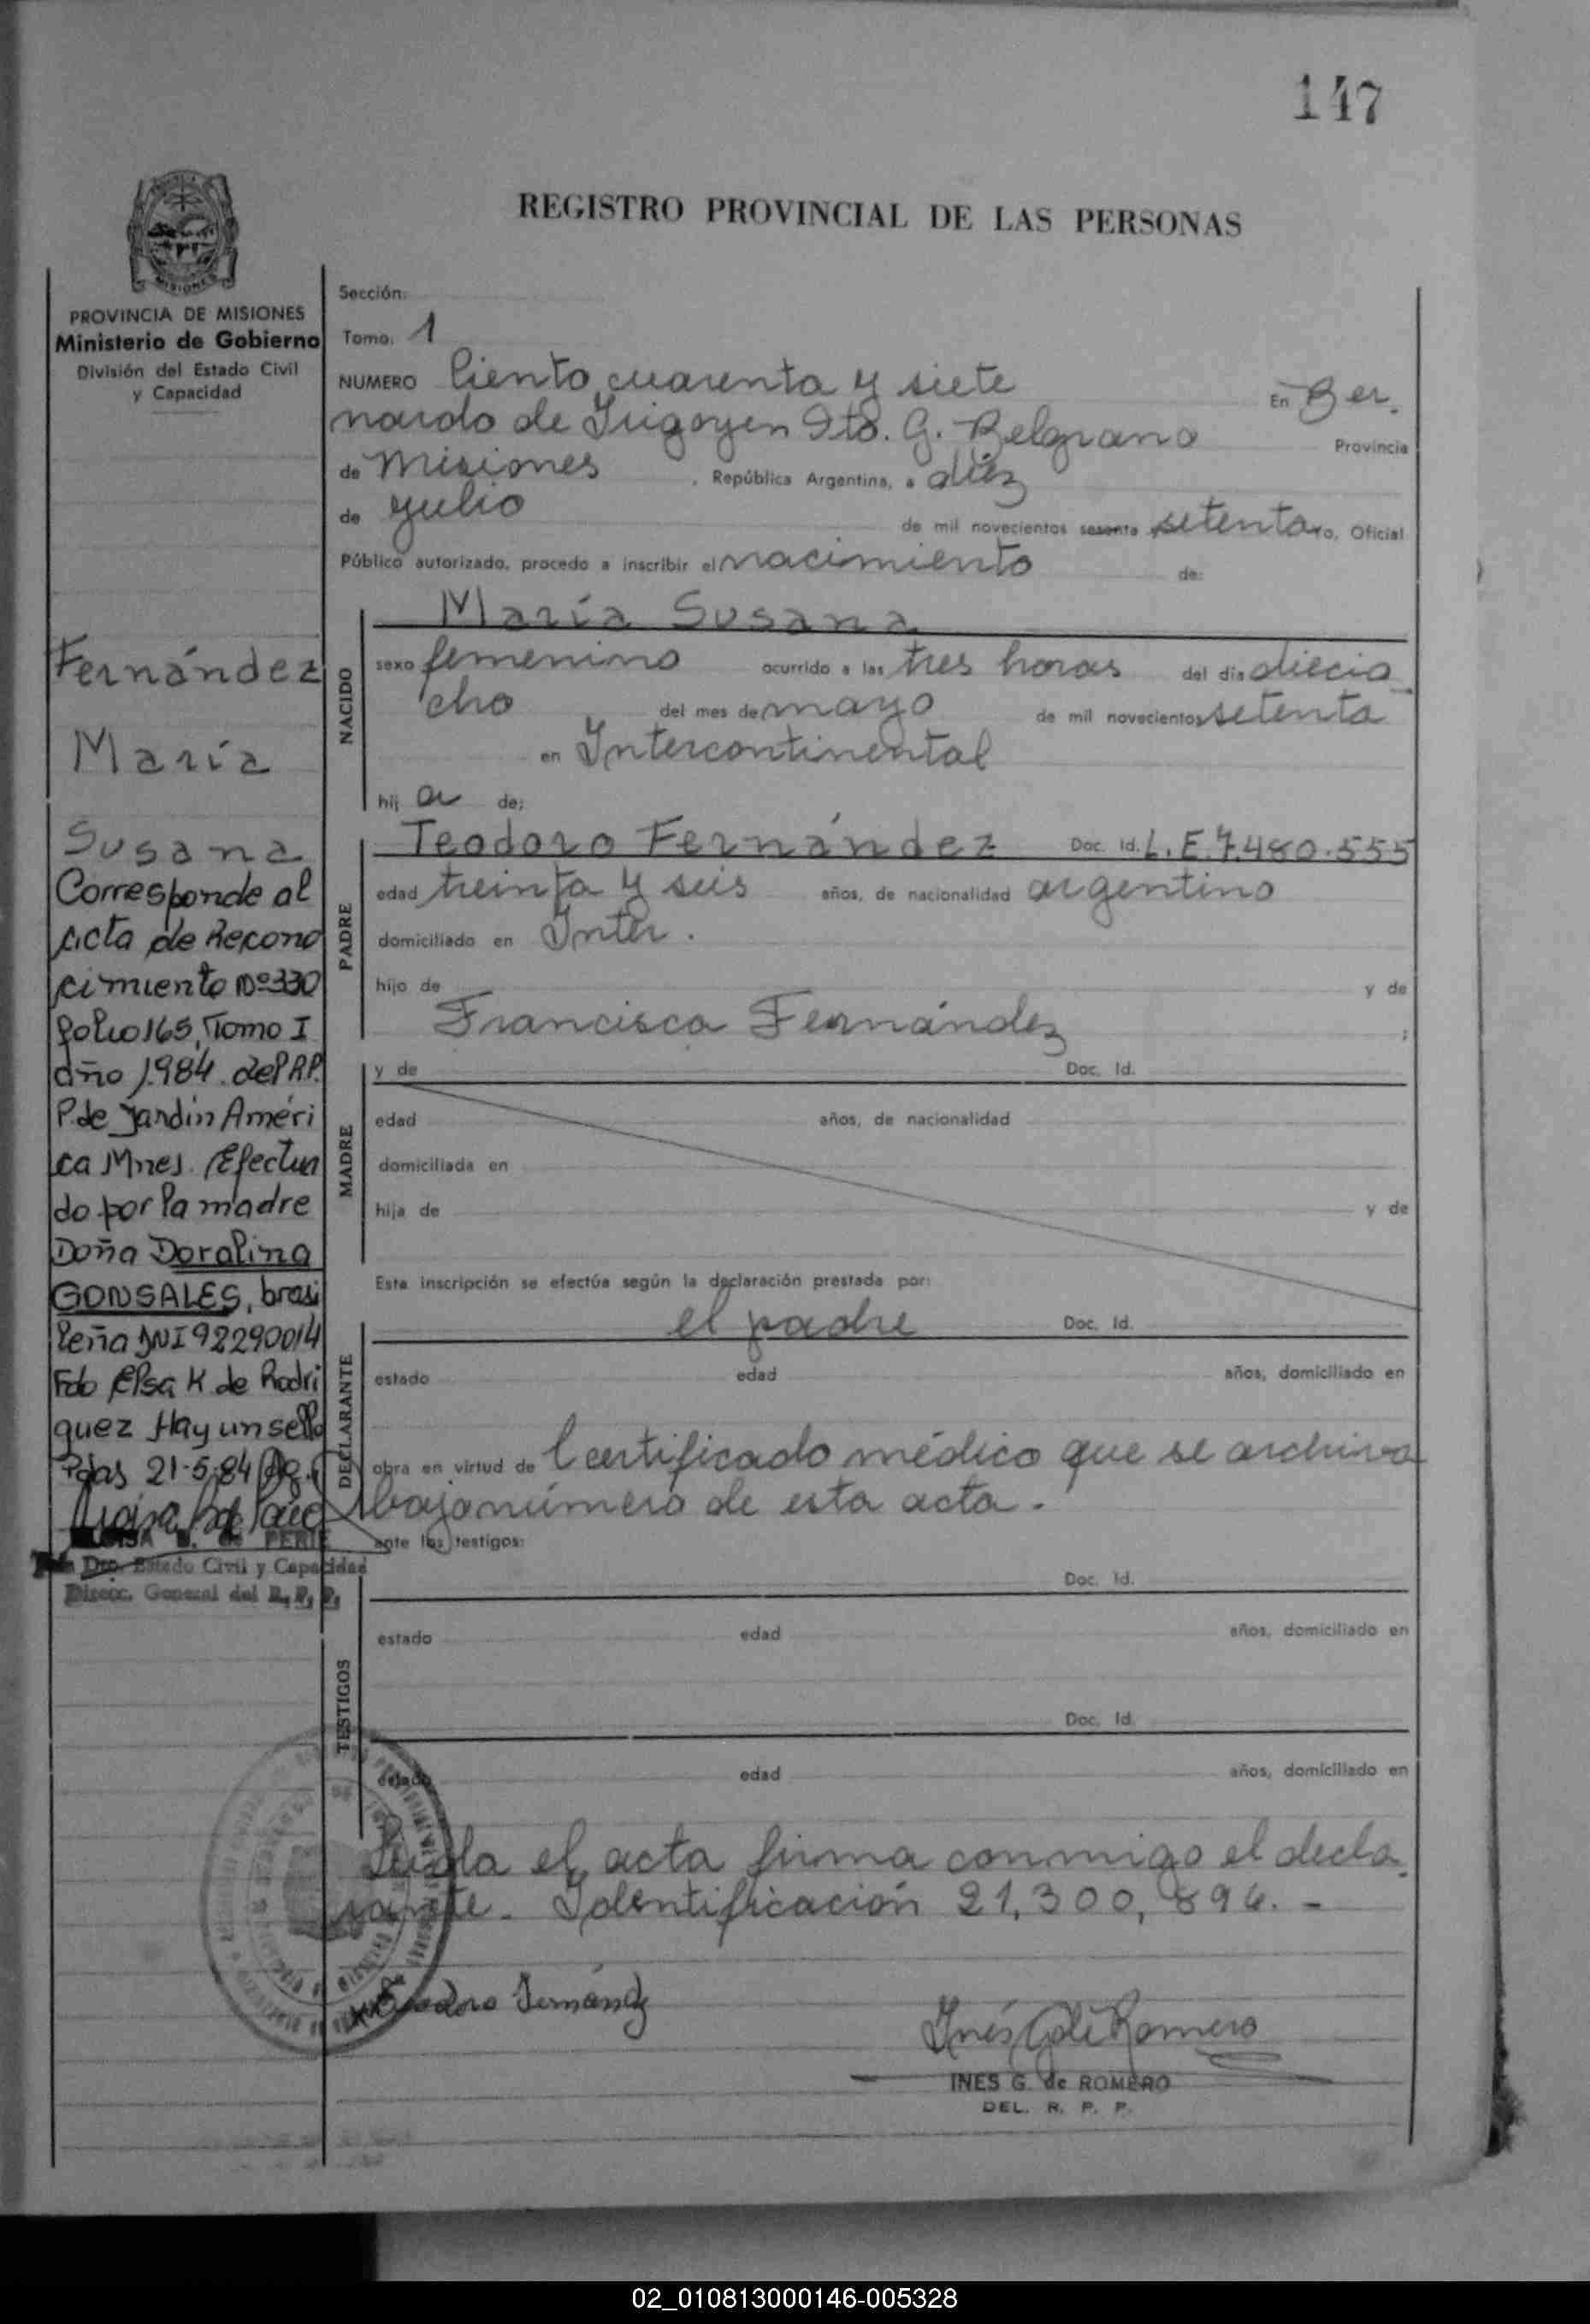 147
REGISTRO PROVINCIAL DE LAS PERSONAS
MISIONES
PROVINCIA DE MISIONES
Ministerio de Gobierno
División del Estado Civil
y Capacidad
Sección:
Tomo: 1
NUMERO Ciento cuarenta y siete En Ber.
nardo de Irigoyen Dto. G. Belgrano Provincia
de Misiones, República Argentina, a diez
de julio de mil novecientos sesenta setenta yo, Oficial
Público autorizado, procedo a inscribir el nacimiento de:
Fernández
María
Susana
Corresponde al
acta de Recono
cimiento Nº 330
folio 165, Tomo I
año 1.984. del R.P.
P. de Jardín Améri
ca Mnes. Efectua
do por la madre
Doña Doralina
GONSALES, brasi
leña DNI 92290014
Fdo Elsa K de Rodri
guez Hay un sello
Pdas 21-5-84
LUISA B. de PERIE
Dto. Estado Civil y Capacidad
Direcc. General del R. P. P.
NACIDO
María Susana
sexo femenino ocurrido a las tres horas del día diecio
cho del mes de mayo de mil novecientos setenta
en Intercontinental
hij a de:
PADRE
Teodoro Fernández Doc. Id. L.E. 7.480.555
edad treinta y seis años, de nacionalidad argentino
domiciliado en Inter.
hijo de y de
Francisca Fernández ;
MADRE
y de Doc. Id.
edad años, de nacionalidad
domiciliada en
hija de y de
Esta inscripción se efectúa según la declaración prestada por:
DECLARANTE
el padre Doc. Id.
estado edad años, domiciliado en
obra en virtud de Certificado médico que se archiva
bajo número de esta acta.
ante los testigos:
TESTIGOS
Doc. Id.
estado edad años, domiciliado en
Doc. Id.
estado edad años, domiciliado en
Leida el acta firma conmigo el decla
rante. Identificación 21,300,894. -
Teodoro Fernández
Inés G de Romero
INES G. de ROMERO
DEL. R. P. P.
02_010813000146-005328